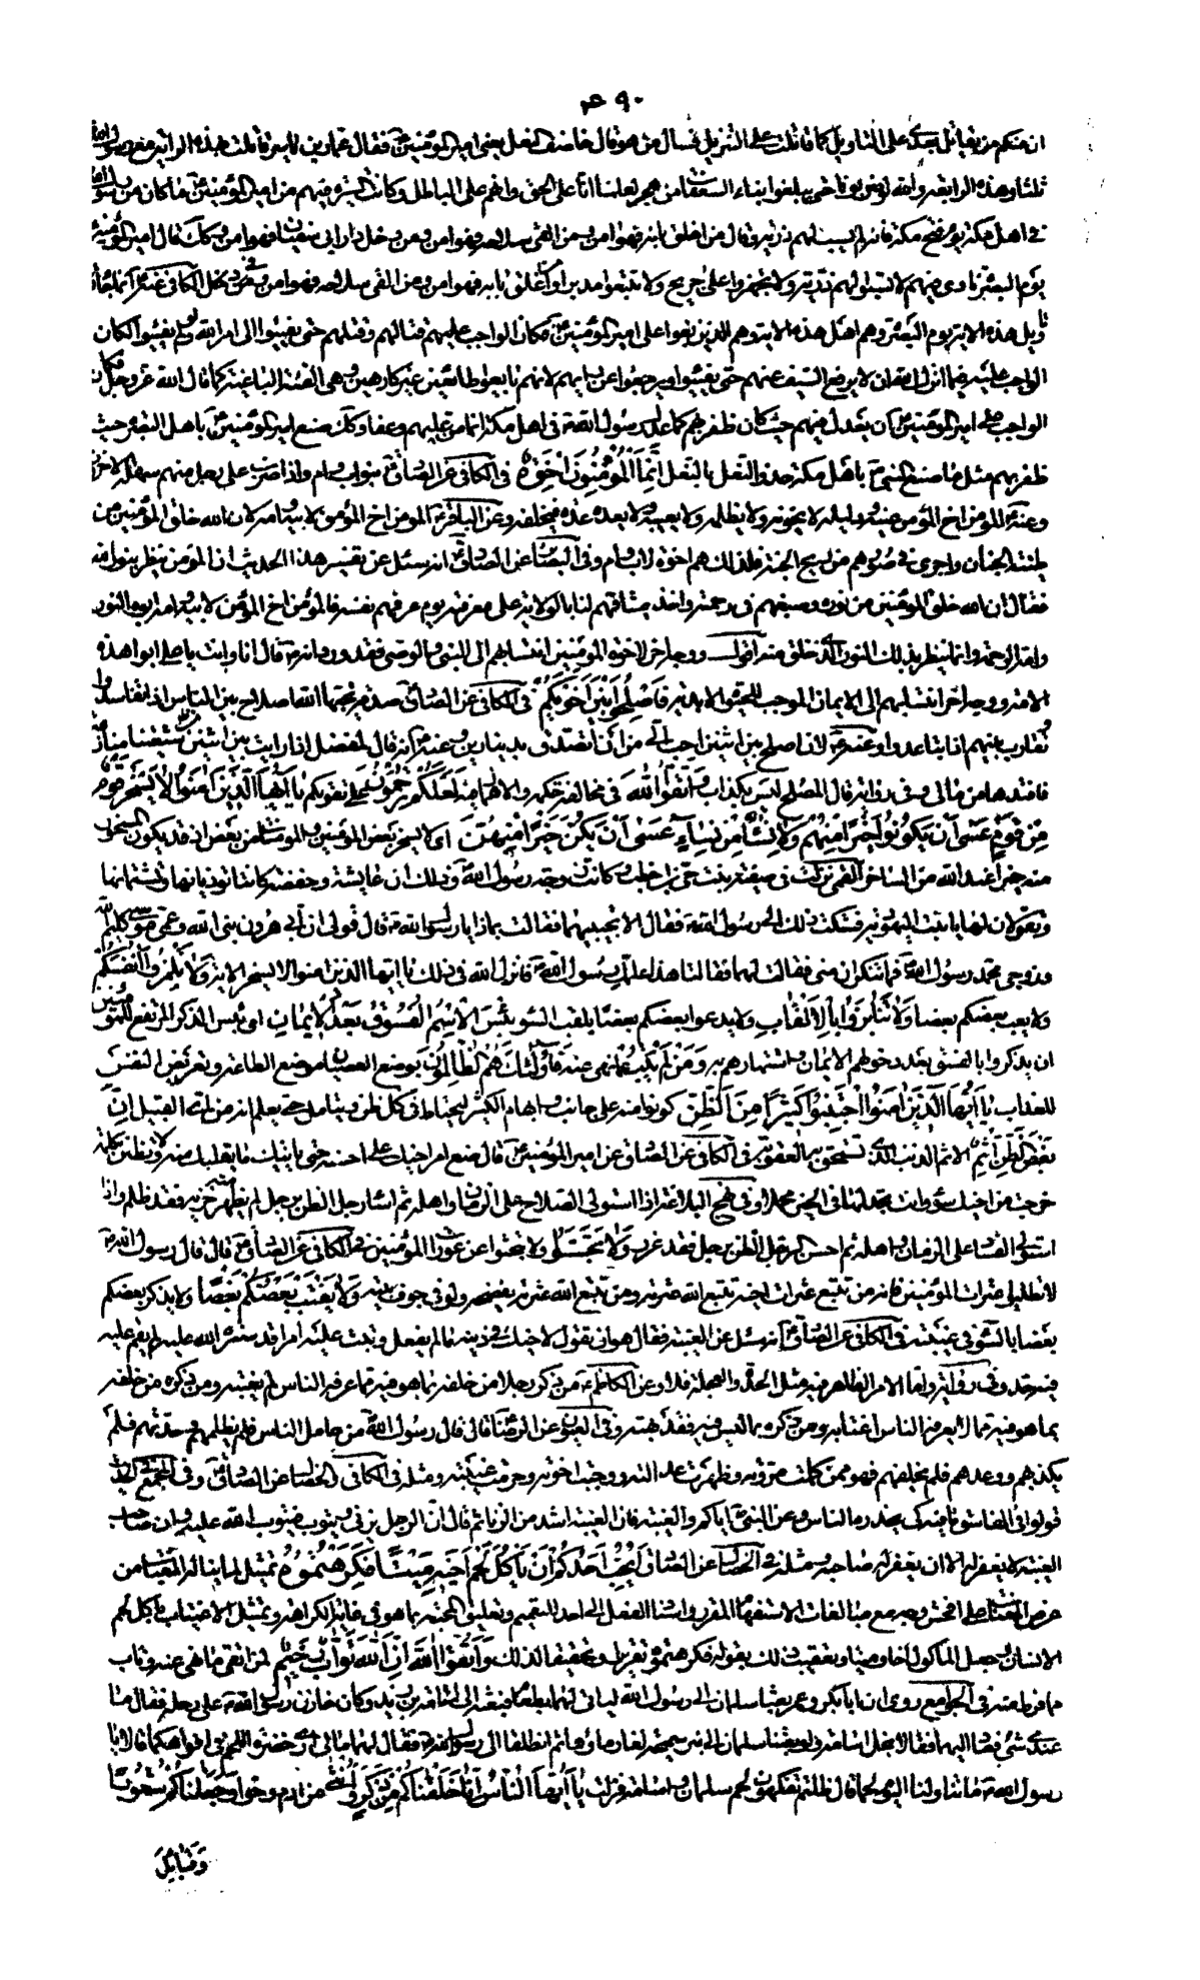 ٤٩٠
ان منكم من يقاتل بعدى على التاويل كما قاتلت على التنزيل فسال من هو قال خاصف النعل يعنى امير المؤمنين فقال عمار بن ياسر قاتلت بهذه الراية مع رسول الله
ثلثا وهذه الرابعة والله لو ضربونا حتى يبلغوا بنا السعفات من هجر لعلمنا انا على الحق وانهم على الباطل وكانت السيرة فيهم من امير المؤمنين ما كان من رسول الله
فى اهل مكة يوم فتح مكة فانه لم يسب لهم ذرية وقال من اغلق بابه فهو امن ومن القى سلاحه فهو امن ومن دخل دار ابى سفيان فهو امن وكك قال امير المؤمنين
يوم البصرة نادى فيهم لا تسبوا لهم ذرية ولا تجهزوا على جريح ولا تتبعوا مدبرا ومن اغلق بابه فهو امن ومن القى سلاحه فهو امن وفى الكافى عنه انما جاء
تاويل هذه الاية يوم البصرة وهم اهل هذه الاية وهم الذين بغوا على امير المؤمنين فكان الواجب عليهم قتالهم وقتلهم حتى يفيئوا الى امر الله ولو لم يفيئوا لكان
الواجب عليه فيما انزل الله ان لا يرفع السيف عنهم حتى يفيئوا ويرجعوا عن رايهم لانهم بايعوا طايعين غير كارهين وهى الفئة الباغية كما قال الله عز وجل فكان
الواجب على امير المؤمنين ان يعدل فيهم حيث كان ظفر بهم كما عدل رسول الله فى اهل مكة انما من عليهم وعفا وكك صنع امير المؤمنين باهل البصرة حيث
ظفر بهم مثل ما صنع النبى باهل مكة حذو النعل بالنعل إِنَّمَا الْمُؤْمِنُونَ إِخْوَةٌ فى الكافى عن الصادق بنو اب وام واذا ضرب على رجل منهم عرق سهر له الاخرون
وعنه المؤمن اخ المؤمن عينه ودليله لا يخونه ولا يظلمه ولا يغشه ولا يعده عدة فيخلفه وعن الباقر المؤمن اخ المؤمن لابيه وامه لان الله خلق المؤمنين من
طينة الجنان واجرى فى صورهم من ريح الجنة فلذلك هم اخوة لاب وام وفى البصائر عن الصادق انه سئل عن تفسير هذا الحديث ان المؤمن ينظر بنور الله
فقال ان الله خلق المؤمنين من نوره وصبغهم فى رحمته واخذ ميثاقهم لنا بالولاية على معرفته يوم عرفهم نفسه فالمؤمن اخ المؤمن لابيه وامه ابوه النور
وامه الرحمة وانما ينظر بذلك النور الذى خلق منه اقول ووجه اخر لاخوة المؤمنين انتسابهم الى النبى والوصى فقد ورد انه قال انا وانت يا على ابوا هذه
الامة ووجه اخر انتسابهم الى الايمان الموجب للحيوة الابدية فَأَصْلِحُوا بَيْنَ أَخَوَيْكُمْ فى الكافى عن الصادق صدقة يحبها الله اصلاح بين الناس اذا تفاسدوا
وتقارب بينهم اذا تباعدوا وعنه لان اصلح بين اثنين احب الى من ان اتصدق بدينارين وعنه انه قال لمفضل اذا رايت بين اثنين من شيعتنا منازعة
فافتدها من مالى وفى رواية قال المصلح ليس بكذاب وَاتَّقُوا اللَّهَ فى مخالفة حكمه والاهمال فيه لَعَلَّكُمْ تُرْحَمُونَ على تقويكم يَا أَيُّهَا الَّذِينَ آمَنُوا لَا يَسْخَرْ قَوْمٌ
مِنْ قَوْمٍ عَسَى أَنْ يَكُونُوا خَيْرًا مِنْهُمْ وَلَا نِسَاءٌ مِنْ نِسَاءٍ عَسَى أَنْ يَكُنَّ خَيْرًا مِنْهُنَّ اى لا يسخر بعض المؤمنين والمؤمنات من بعض اذ قد يكون المسخور
منه خيرا عند الله من الساخر القمى نزلت فى صفية بنت حى بن اخطب وكانت زوجة رسول الله وذلك ان عايشة وحفصة كانتا تؤذيانها وتشتمانها
وتقولان لها يا بنت اليهودية فشكت ذلك الى رسول الله فقال الا تجيبيهما فقالت بماذا يا رسول الله قال قولى ان ابى هرون نبى الله وعمى موسى كليم الله
وزوجى محمد رسول الله فما تنكران منى فقالت لهما فقالتا هذا علمك رسول الله فانزل الله فى ذلك يا ايها الذين امنوا لا يسخر الاية وَلَا تَلْمِزُوا أَنْفُسَكُمْ
ولا يعب بعضكم بعضا وَلَا تَنَابَزُوا بِالْأَلْقَابِ ولا يدعوا بعضكم بعضا بلقب السوء بِئْسَ الِاسْمُ الْفُسُوقُ بَعْدَ الْإِيمَانِ اى بئس الذكر المرتفع للمؤمنين
ان يذكروا بالفسق بعد دخولهم الايمان واشتهارهم به وَمَنْ لَمْ يَتُبْ عما نهى عنه فَأُولَئِكَ هُمُ الظَّالِمُونَ بوضع العصيان موضع الطاعة وتعريض النفس
للعذاب يَا أَيُّهَا الَّذِينَ آمَنُوا اجْتَنِبُوا كَثِيرًا مِنَ الظَّنِّ كونوا منه على جانب وابهام الكثير ليحتاط فى كل ظن ويتامل حتى يعلم انه من اى القبيل إِنَّ
بَعْضَ الظَّنِّ إِثْمٌ الاثم الذنب الذى تستحق به العقوبة فى الكافى عن الصادق عن امير المؤمنين قال ضع امر اخيك على احسنه حتى ياتيك ما يقلبك منه ولا تظنن بكلمة
خرجت من اخيك سوء وانت تجد لها فى الخير محملا وفى نهج البلاغة اذا استولى الصلاح على الزمان واهله ثم اساء رجل الظن برجل لم يظهر منه خزية فقد ظلم واذا
استولى الفساد على الزمان واهله ثم احسن الرجل الظن برجل فقد غرر وَلَا تَجَسَّسُوا ولا تبحثوا عن عورات المؤمنين فى الكافى عن الصادق قال قال رسول الله
لا تطلبوا عثرات المؤمنين فانه من تتبع عثرات اخيه تتبع الله عثرته ومن تتبع الله عثرته يفضحه ولو فى جوف بيته وَلَا يَغْتَبْ بَعْضُكُمْ بَعْضًا ولا يذكر بعضكم
بعضا بالسوء فى غيبته فى الكافى عن الصادق انه سئل عن الغيبة فقال هو ان تقول لاخيك فى دينه ما لم يفعل وتبث عليه امرا قد ستره الله عليه لم يقم عليه
فيه حد وفى رواية واما الامر الظاهر فيه مثل الحدة والعجلة فلا وعن الكاظم من ذكر رجلا من خلفه بما هو فيه مما عرفه الناس لم يغتبه ومن ذكره من خلفه
بما هو فيه مما لا يعرفه الناس اغتابه ومن ذكره بما ليس فيه فقد بهته وفى العيون عن الرضا قال قال رسول الله من عامل الناس فلم يظلمهم وحدثهم فلم
يكذبهم ووعدهم فلم يخلفهم فهو ممن كملت مروته وظهرت عدالته ووجبت اخوته وحرمت غيبته ومثله فى الكافى والخصال عن الصادق وفى المجمع فى الحديث
قولوا فى الفاسق ما فيه كى يحذره الناس وعن النبى اياكم والغيبة فان الغيبة اشد من الزنا ثم قال ان الرجل يزنى ويتوب فيتوب الله عليه وان صاحب
الغيبة لا يغفر له الا ان يغفر له صاحبه ومثله فى الخصال عن الصادق أَيُحِبُّ أَحَدُكُمْ أَنْ يَأْكُلَ لَحْمَ أَخِيهِ مَيْتًا فَكَرِهْتُمُوهُ تمثيل لما يناله المغتاب من
عرض المغتاب على افحش وجه مع مبالغات الاستفهام المقرر واسناد الفعل الى احد للتعميم وتعليق المحبة بما هو فى غاية الكراهة وتمثيل الاغتياب باكل لحم
الانسان وجعل الماكول اخا وميتا وتعقيب ذلك بقوله فكرهتموه تقريرا وتحقيقا لذلك وَاتَّقُوا اللَّهَ إِنَّ اللَّهَ تَوَّابٌ رَحِيمٌ لمن اتقى ما نهى عنه وتاب
مما فرط منه فى الجوامع روى ان ابا بكر وعمر بعثا سلمان الى رسول الله لياتى لهما بطعام فبعثه الى اسامة بن زيد وكان خازن رسول الله على رحله فقال ما
عندى شىء فعاد اليهما فقالا بخل اسامة ولو بعثنا سلمان الى بئر سميحة لغار ماؤها ثم انطلقا الى رسول الله فقال لهما مالى ارى خضرة اللحم فى افواهكما قالا يا
رسول الله ما تناولنا اليوم لحما قال ظلتم تفكهون لحم سلمان واسامة فنزلت يَا أَيُّهَا النَّاسُ إِنَّا خَلَقْنَاكُمْ مِنْ ذَكَرٍ وَأُنْثَى من ادم وحوا وَجَعَلْنَاكُمْ شُعُوبًا
وَقَبَائِلَ